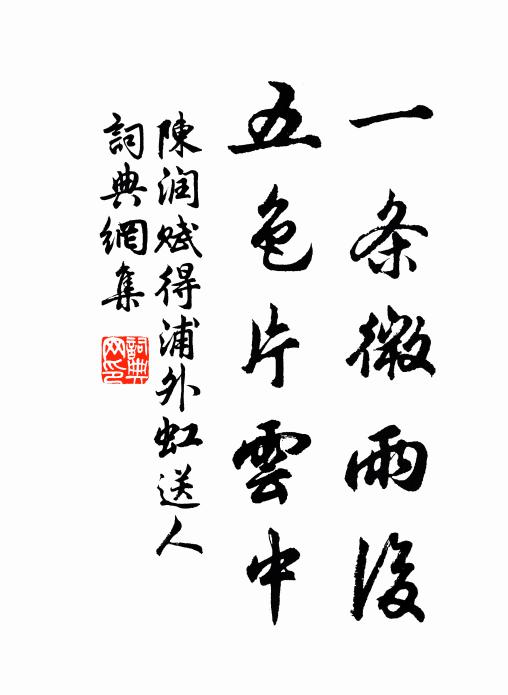 一条微雨後
五色片雲中
陳润赋得浦外虹送人
詞典網集
詞典網印